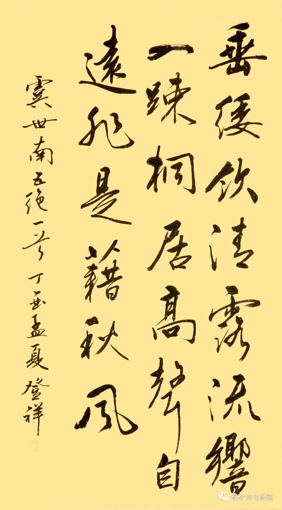 垂緌饮清露流響
一踈桐居高聲自
遠非是藉秋风
虞世南五绝一首丁酉孟夏登祥